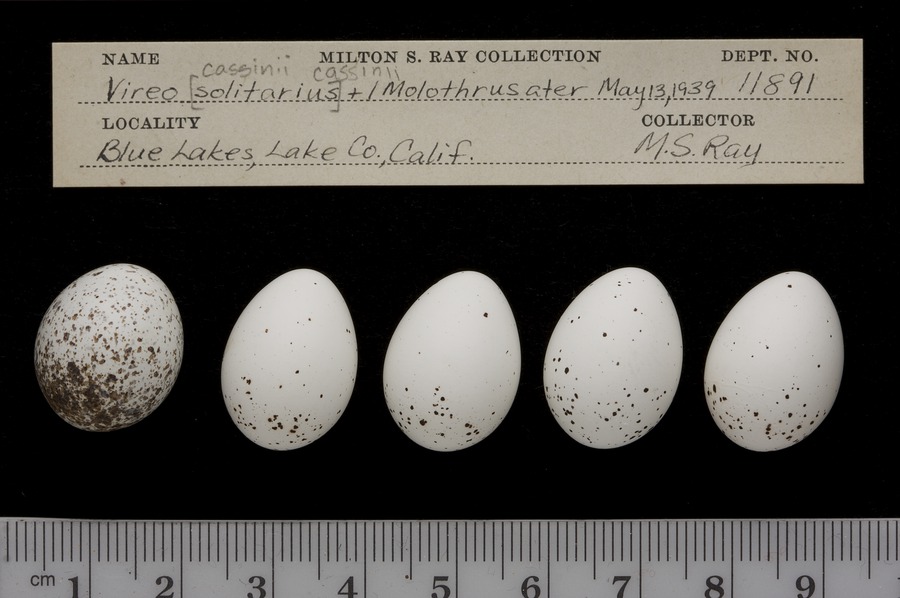 NAME MILTON S. RAY COLLECTION DEPT. NO.
cassinii cassinii
Vireo [solitarius] + 1 Molothrus ater May 13, 1939 11891
LOCALITY COLLECTOR
Blue Lakes, Lake Co., Calif. M.S. Ray
cm 1 2 3 4 5 6 7 8 9